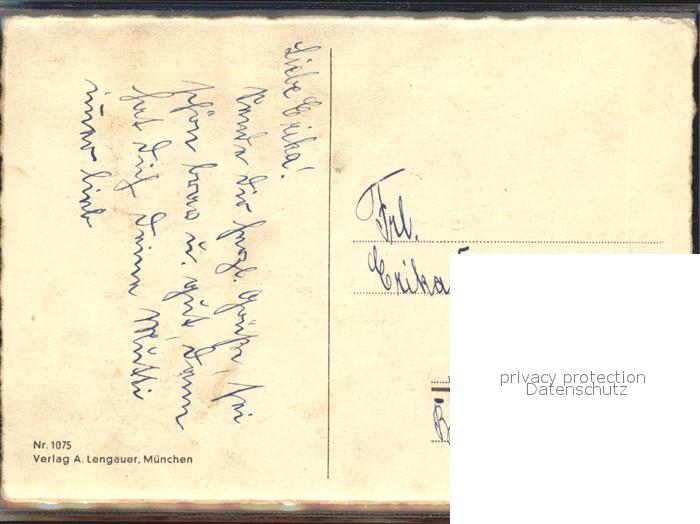 Liebe Erika!
Sende Dir herzl. Grüße, sei
schön brav u. gut, dann
hat Dich Deine Mutti
immer lieb
Frl.
Erika
Nr. 1075
Verlag A. Lengauer, München
privacy protection
Datenschutz